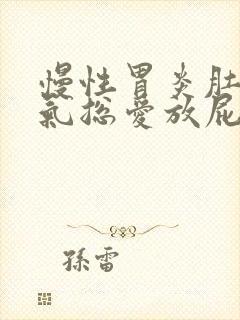 慢性胃炎肚
氣總愛放屁
孫雷